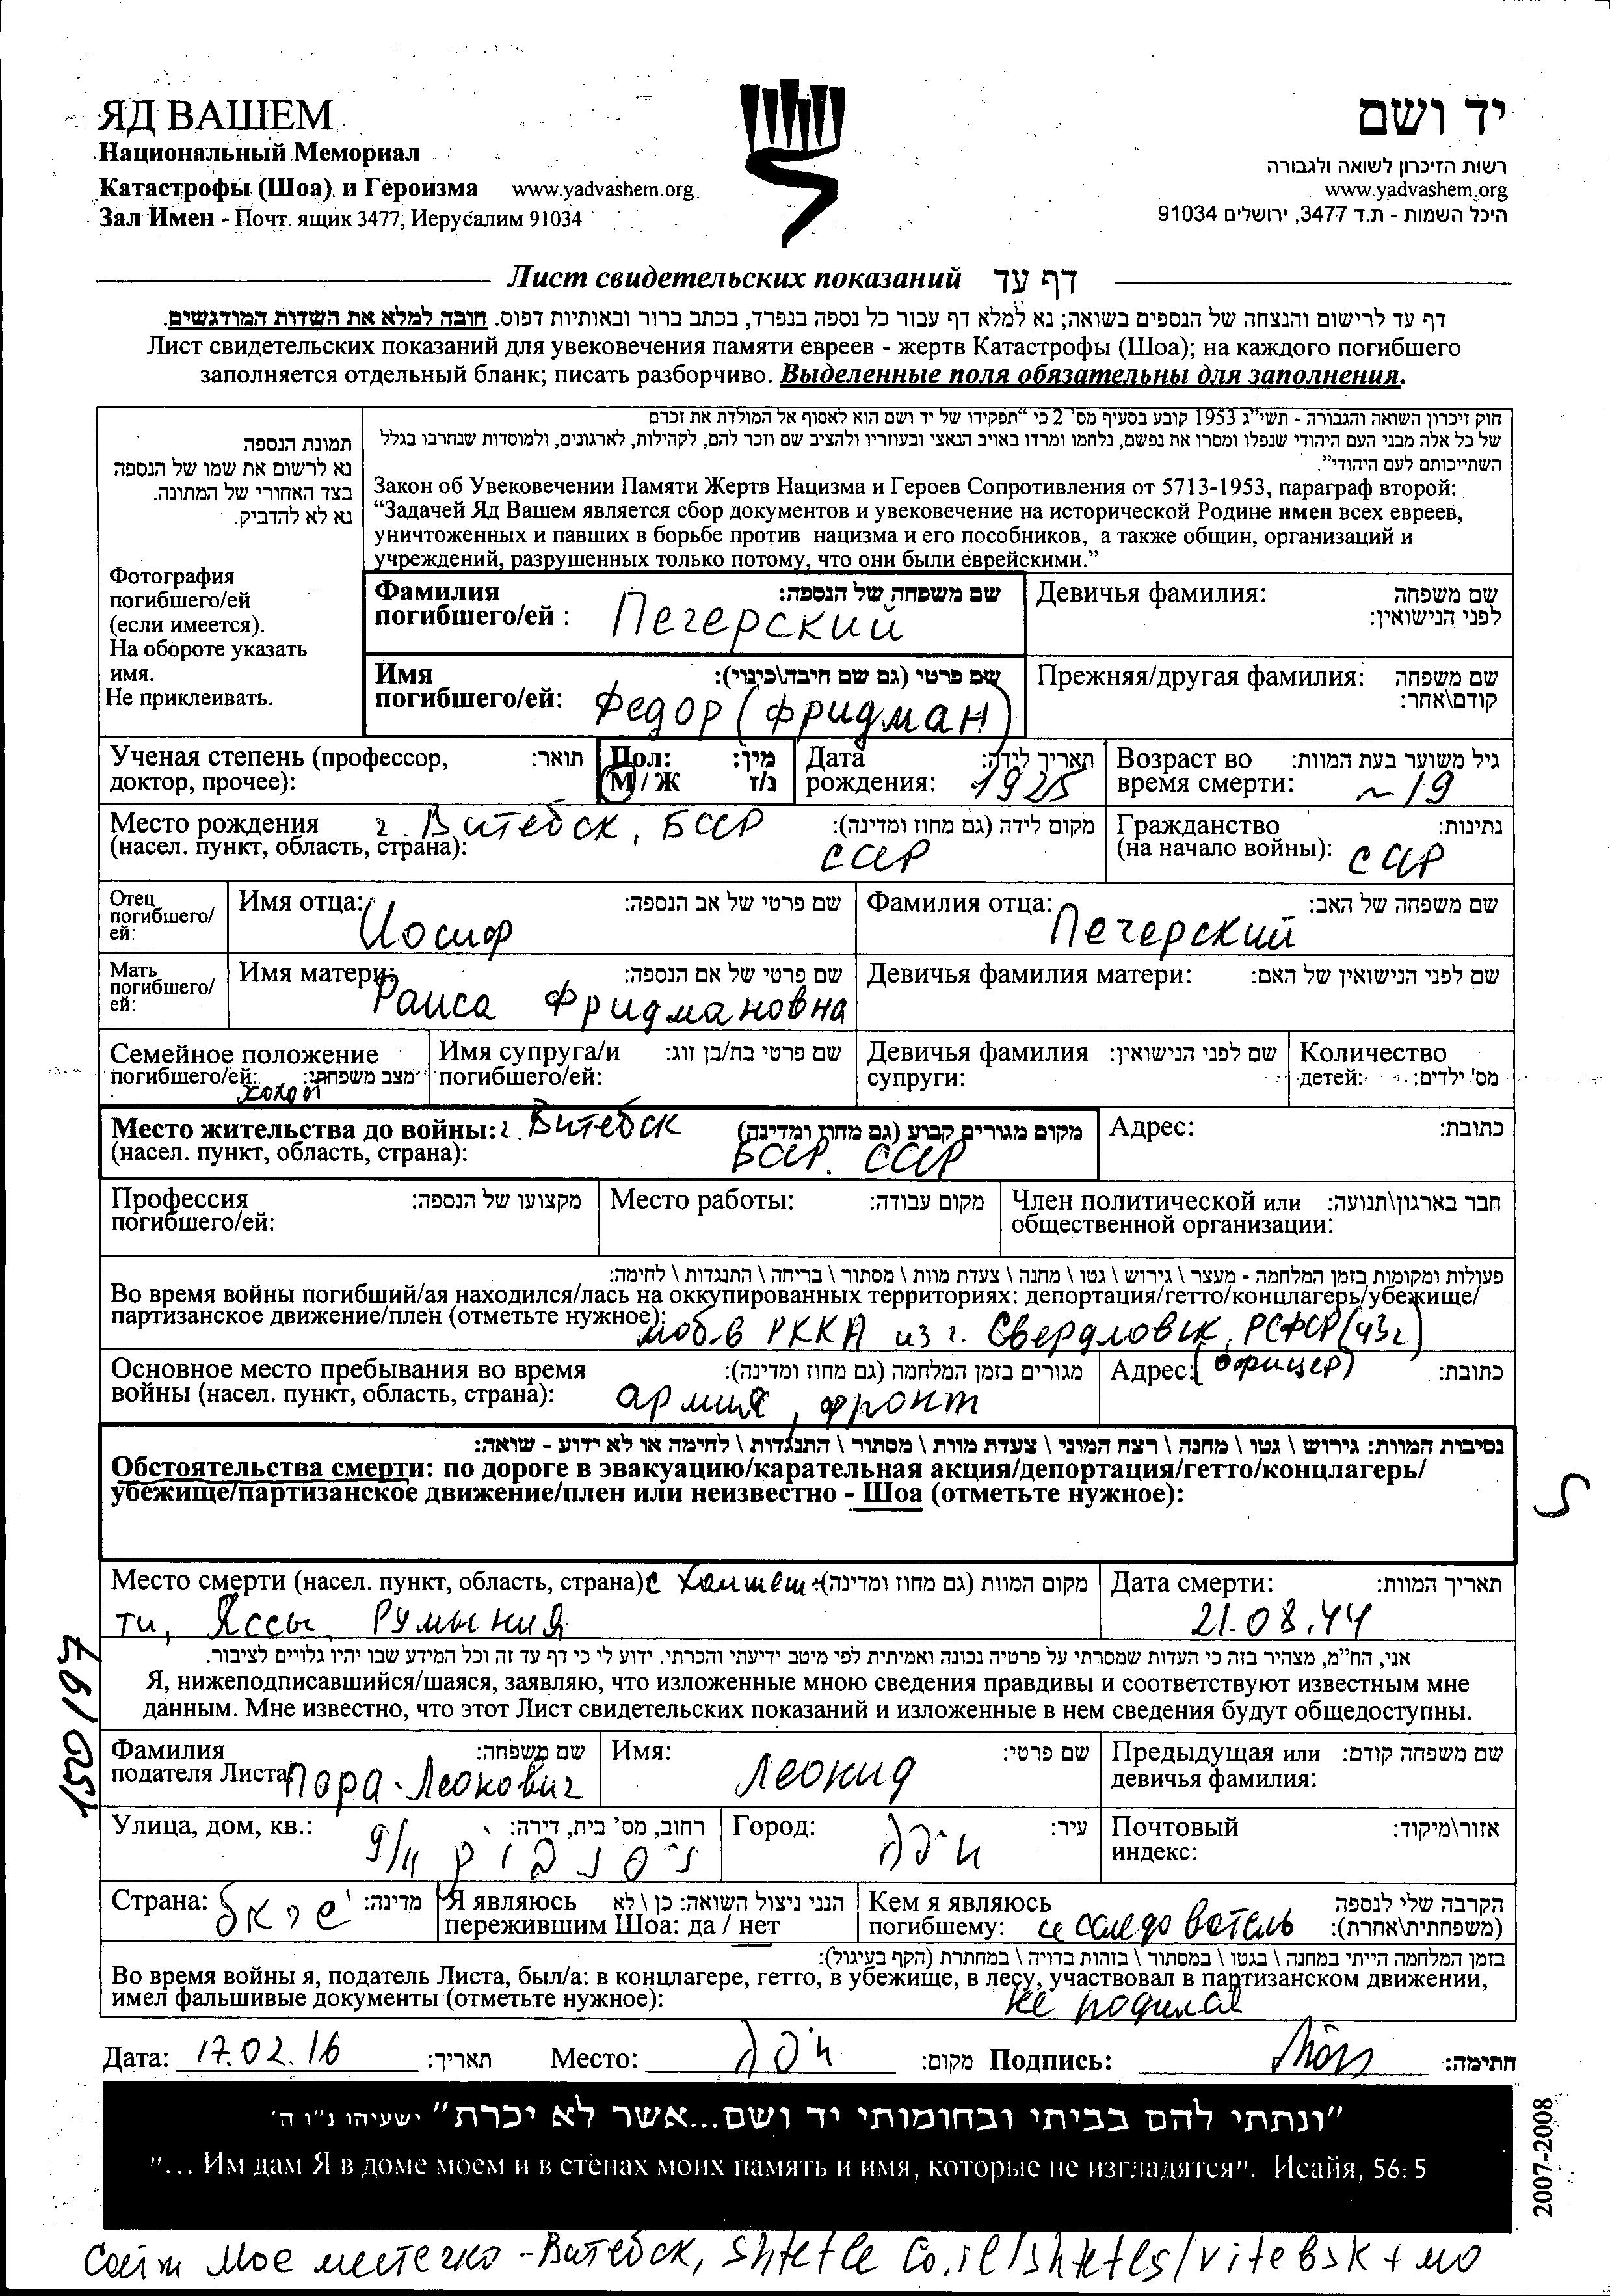 ЯД ВАШЕМ
Национальный Мемориал
Катастрофы (Шоа) и Героизма www.yadvashem.org
Зал Имен - Почт. ящик 3477, Иерусалим 91034
יד ושם
רשות הזיכרון לשואה ולגבורה
www.yadvashem.org
היכל השמות - ת.ד 3477, ירושלים 91034
Лист свидетельских показаний דף עד
דף עד לרישום והנצחה של הנספים בשואה; נא למלא דף עבור כל נספה בנפרד, בכתב ברור ובאותיות דפוס. חובה למלא את השדות המודגשים.
Лист свидетельских показаний для увековечения памяти евреев - жертв Катастрофы (Шоа); на каждого погибшего
заполняется отдельный бланк; писать разборчиво. Выделенные поля обязательны для заполнения.
תמונת הנספה
נא לרשום את שמו של הנספה
בצד האחורי של התמונה.
נא לא להדביק.
Фотография
погибшего/ей
(если имеется).
На обороте указать
имя.
Не приклеивать.
חוק זיכרון השואה והגבורה - תשי"ג 1953 קובע בסעיף מס' 2 כי "תפקידו של יד ושם הוא לאסוף אל המולדת את זכרם
של כל אלה מבני העם היהודי שנפלו ומסרו את נפשם, נלחמו ומרדו באויב הנאצי ובעוזריו ולהציב שם וזכר להם, לקהילות, לארגונים, ולמוסדות שנחרבו בגלל
השתייכותם לעם היהודי".
Закон об Увековечении Памяти Жертв Нацизма и Героев Сопротивления от 5713-1953, параграф второй:
"Задачей Яд Вашем является сбор документов и увековечение на исторической Родине имен всех евреев,
уничтоженных и павших в борьбе против нацизма и его пособников, а также общин, организаций и
учреждений, разрушенных только потому, что они были еврейскими."
Фамилия שם משפחה של הנספה:
погибшего/ей : Печерский
Девичья фамилия: שם משפחה
לפני הנישואין:
Имя שם פרטי (גם שם חיבה\כינוי):
погибшего/ей: Федор (Фридман)
Прежняя/другая фамилия: שם משפחה
קודם\אחר:
Ученая степень (профессор, תואר:
доктор, прочее):
Пол: מין:
М / Ж נ/ז
Дата תאריך לידה:
рождения: 1925
Возраст во גיל משוער בעת המוות:
время смерти: ~19
Место рождения г. Витебск, БССР מקום לידה (גם מחוז ומדינה):
(насел. пункт, область, страна): СССР
Гражданство נתינות:
(на начало войны): СССР
Отец
погибшего/
ей:
Имя отца: שם פרטי של אב הנספה:
Иосиф
Фамилия отца: שם משפחה של האב:
Печерский
Мать
погибшего/
ей:
Имя матери: שם פרטי של אם הנספה:
Раиса Фридмановна
Девичья фамилия матери: שם לפני הנישואין של האם:
Семейное положение
погибшего/ей: מצב משפחתי:
холост
Имя супруга/и שם פרטי בת/בן זוג:
погибшего/ей:
Девичья фамилия שם לפני הנישואין:
супруги:
Количество
детей: מס' ילדים:
Место жительства до войны: г. Витебск מקום מגורים קבוע (גם מחוז ומדינה)
(насел. пункт, область, страна): БССР. СССР
Адрес: כתובת:
Профессия מקצועו של הנספה:
погибшего/ей:
Место работы: מקום עבודה:
Член политической или חבר בארגון\תנועה:
общественной организации:
פעולות ומקומות בזמן המלחמה - מעצר \ גירוש \ גטו \ מחנה \ צעדת מוות \ מסתור \ בריחה \ התנגדות \ לחימה:
Во время войны погибший/ая находился/лась на оккупированных территориях: депортация/гетто/концлагерь/убежище/
партизанское движение/плен (отметьте нужное):
моб. в РККА из г. Свердловск, РСФСР (43г)
Основное место пребывания во время מגורים בזמן המלחמה (גם מחוז ומדינה):
войны (насел. пункт, область, страна): армия, фронт
Адрес: (офицер) כתובת:
נסיבות המוות: גירוש \ גטו \ מחנה \ רצח המוני \ צעדת מוות \ מסתור \ התנגדות \ לחימה או לא ידוע - שואה:
Обстоятельства смерти: по дороге в эвакуацию/карательная акция/депортация/гетто/концлагерь/
убежище/партизанское движение/плен или неизвестно - Шоа (отметьте нужное):
Место смерти (насел. пункт, область, страна) מקום המוות (גם מחוז ומדינה):
ти, Яссы, Румыния
Дата смерти: תאריך המוות:
21.08.44
150/197
אני, הח"מ, מצהיר בזה כי העדות שמסרתי על פרטיה נכונה ואמיתית לפי מיטב ידיעתי והכרתי. ידוע לי כי דף עד זה וכל המידע שבו יהיו גלויים לציבור.
Я, нижеподписавшийся/шаяся, заявляю, что изложенные мною сведения правдивы и соответствуют известным мне
данным. Мне известно, что этот Лист свидетельских показаний и изложенные в нем сведения будут общедоступны.
Фамилия שם משפחה:
подателя Листа: Пора-Леонович
Имя: שם פרטי:
Леонид
Предыдущая или שם משפחה קודם:
девичья фамилия:
Улица, дом, кв.: רחוב, מס' בית, דירה:
9/11
Город: עיר:
Почтовый אזור\מיקוד:
индекс:
Страна: מדינה:
Я являюсь הנני ניצול השואה: כן \ לא
пережившим Шоа: да / нет
Кем я являюсь הקרבה שלי לנספה
погибшему: исследователь (משפחתית\אחרת):
בזמן המלחמה הייתי במחנה \ בגטו \ במסתור \ בזהות בדויה \ במחתרת (הקף בעיגול):
Во время войны я, податель Листа, был/а: в концлагере, гетто, в убежище, в лесу, участвовал в партизанском движении,
имел фальшивые документы (отметьте нужное): не родился
Дата: 17.02.16 תאריך: Место: מקום: Подпись: חתימה:
"ונתתי להם בביתי ובחומותי יד ושם...אשר לא יכרת" ישעיהו נ"ו ה'
"... Им дам Я в доме моем и в стенах моих память и имя, которые не изгладятся". Исайя, 56: 5
2007-2008
Сайт Мое местечко - Витебск, shtetle Co.il/shtetls/vitebsk + мо